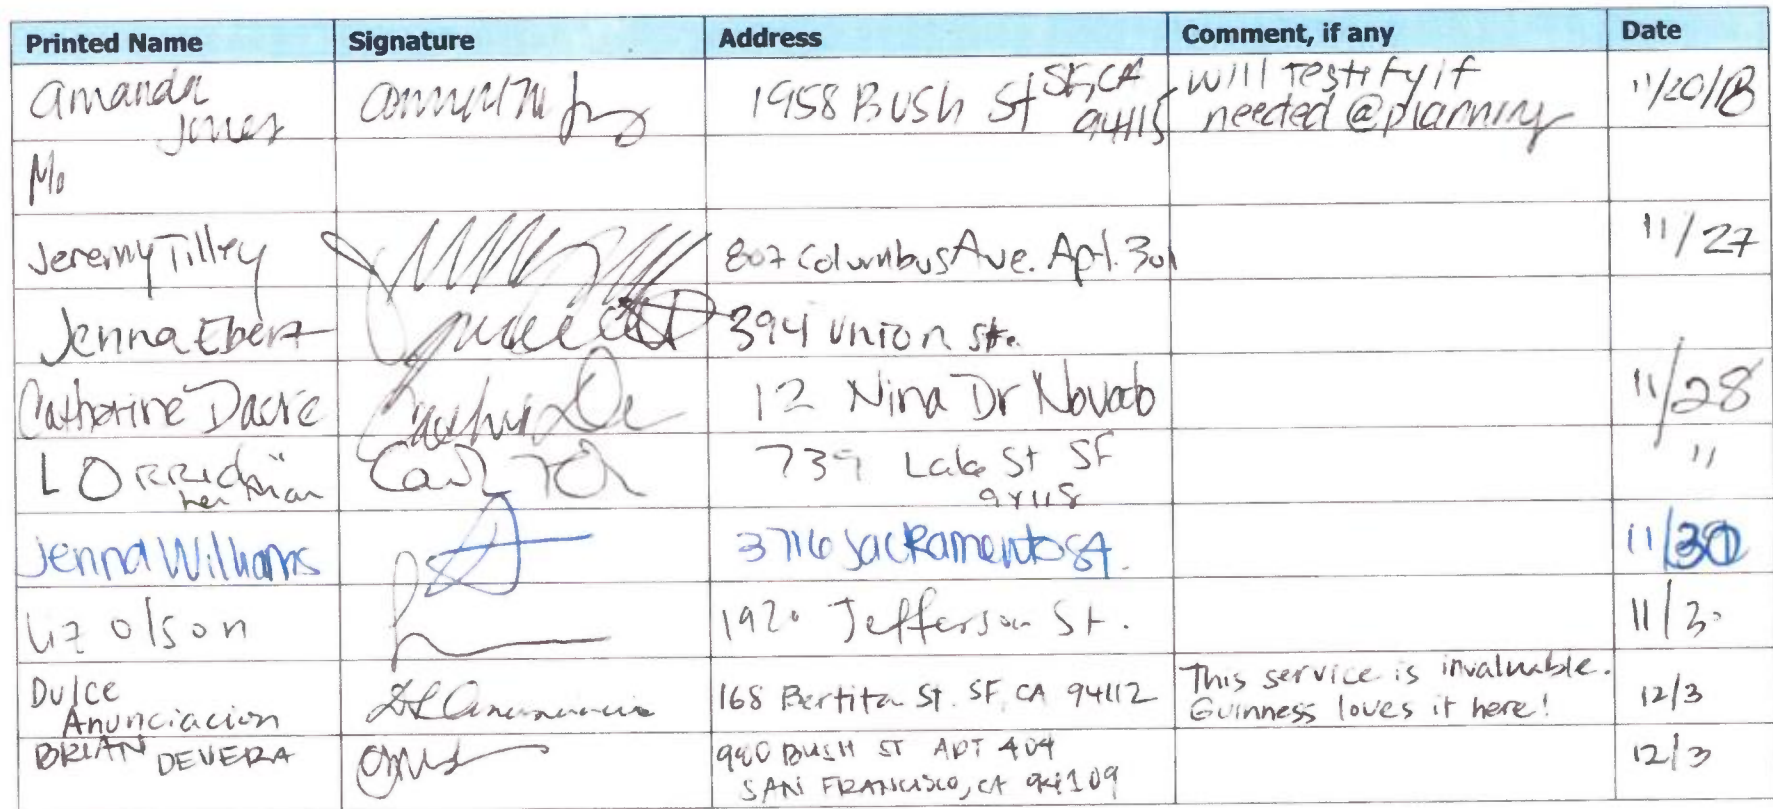 Printed Name Signature Address Comment, if any Date
Amanda Jones 1958 Bush St SF, CA 94115 will testify if needed @planning 11/20/18
Mo
Jeremy Tilley 807 Columbus Ave. Apt. 301 11/27
Jenna Ebert 394 Union St.
Catherine Dacre 12 Nina Dr Novato 11/28
739 Lake St SF 94118 "
Jenna Williams 3716 Sacramento St. 11/30
Liz Olson 1920 Jefferson St. 11/30
Dulce Anunciacion 168 Bertita St. SF, CA 94112 This service is invaluable. Guinness loves it here! 12/3
BRIAN DEVERA 980 BUSH ST APT 404 SAN FRANCISCO, CA 94109 12/3